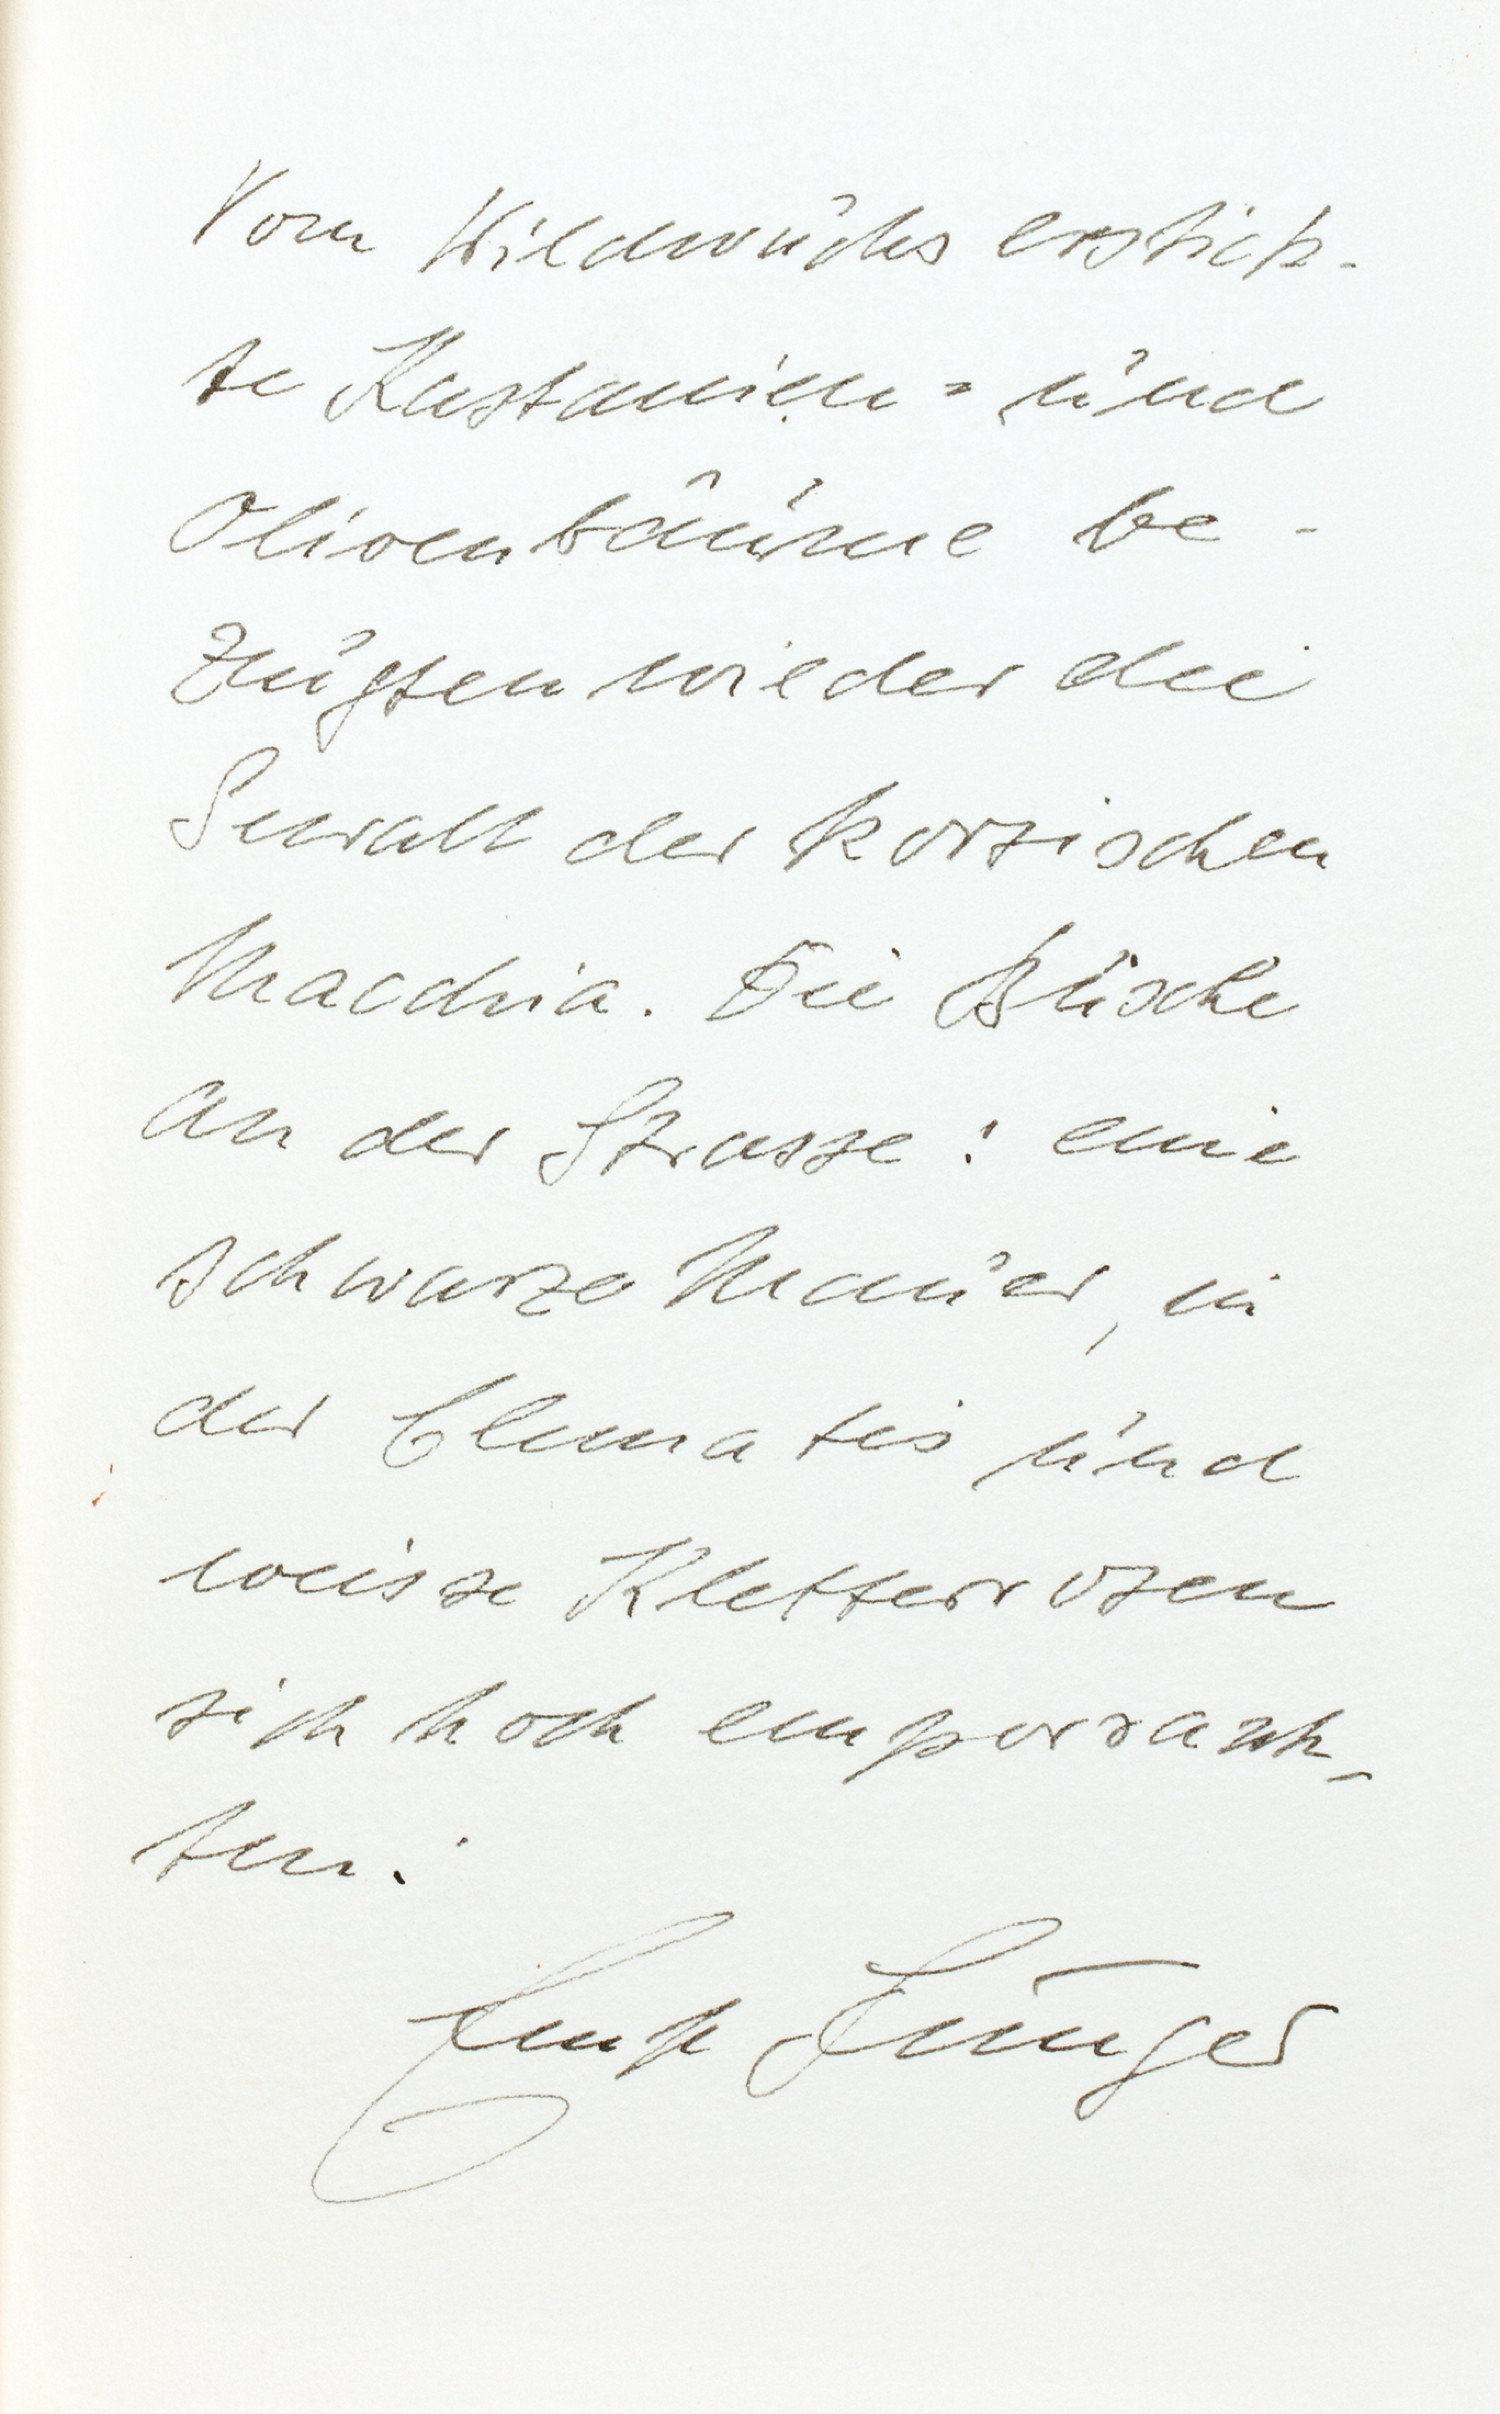 Vom Wildwuchs erstick-
te Kastanien- und
Olivenbäume be-
zeugten wieder die
Gewalt der korsischen
Macchia. Die Büsche
an der Strasse: eine
schwarze Mauer, in
der Clematis und
weisse Kletterrosen
sich hoch emporrank-
ten.
Ernst Jünger